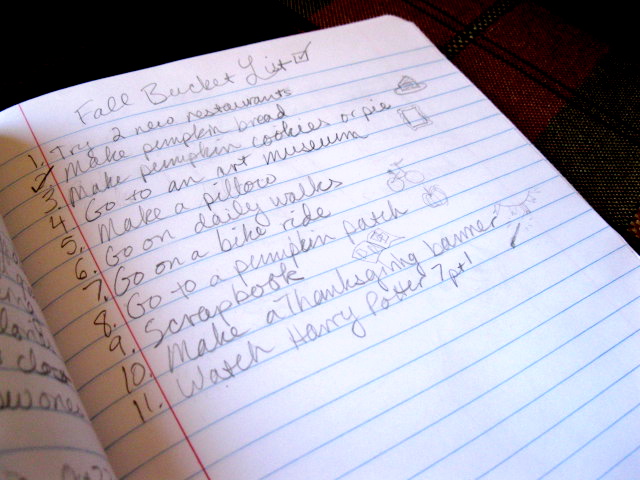 Fall Bucket List
1. Try 2 new restaurants
2. Make pumpkin bread
3. Make pumpkin cookies or pie
4. Go to an art museum
5. Make a pillow
6. Go on daily walks
7. Go on a bike ride
8. Go to a pumpkin patch
9. Scrapbook
10. Make a Thanksgiving banner
11. Watch Harry Potter 7 pt 1